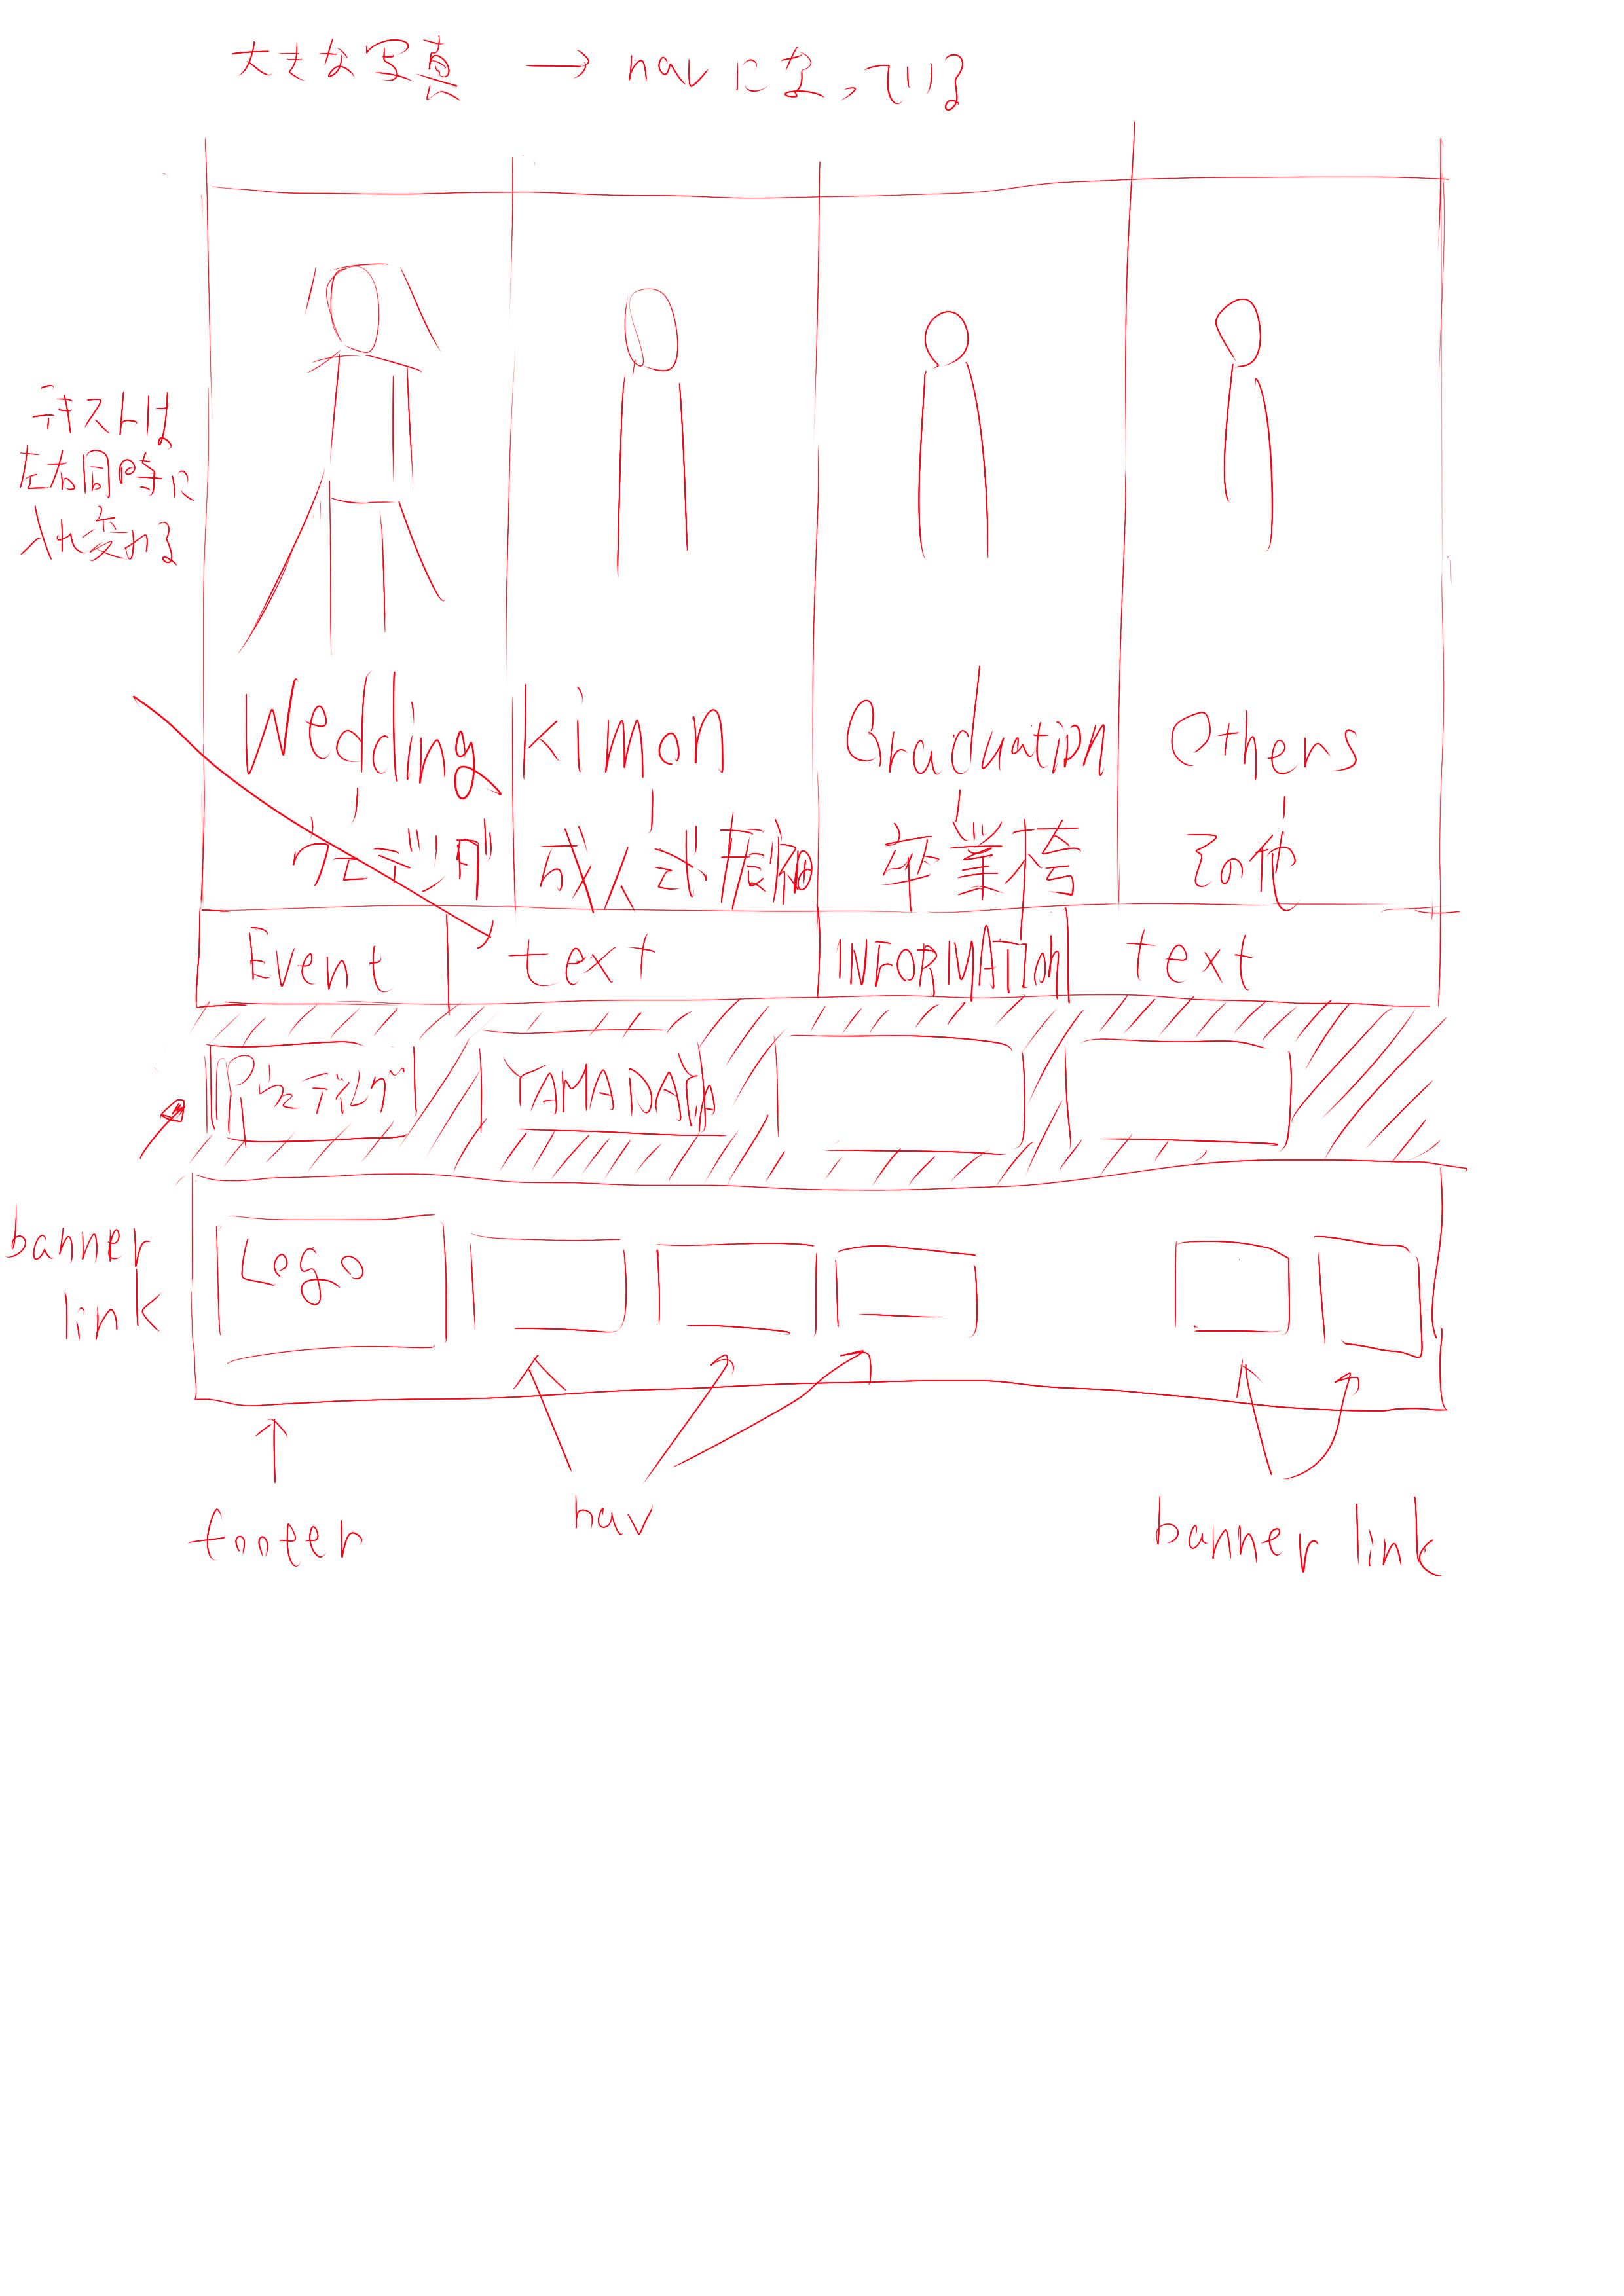 大きな写真 → navになっている
テキストは
左右同時に
入れ変わる
Wedding
ウェディング
kimon
成人式振袖
Graduation
卒業袴
Others
その他
Event
text
INFORMATIOn
text
ウェディング
YAMADA
banner
link
Logo
footer
nav
banner link